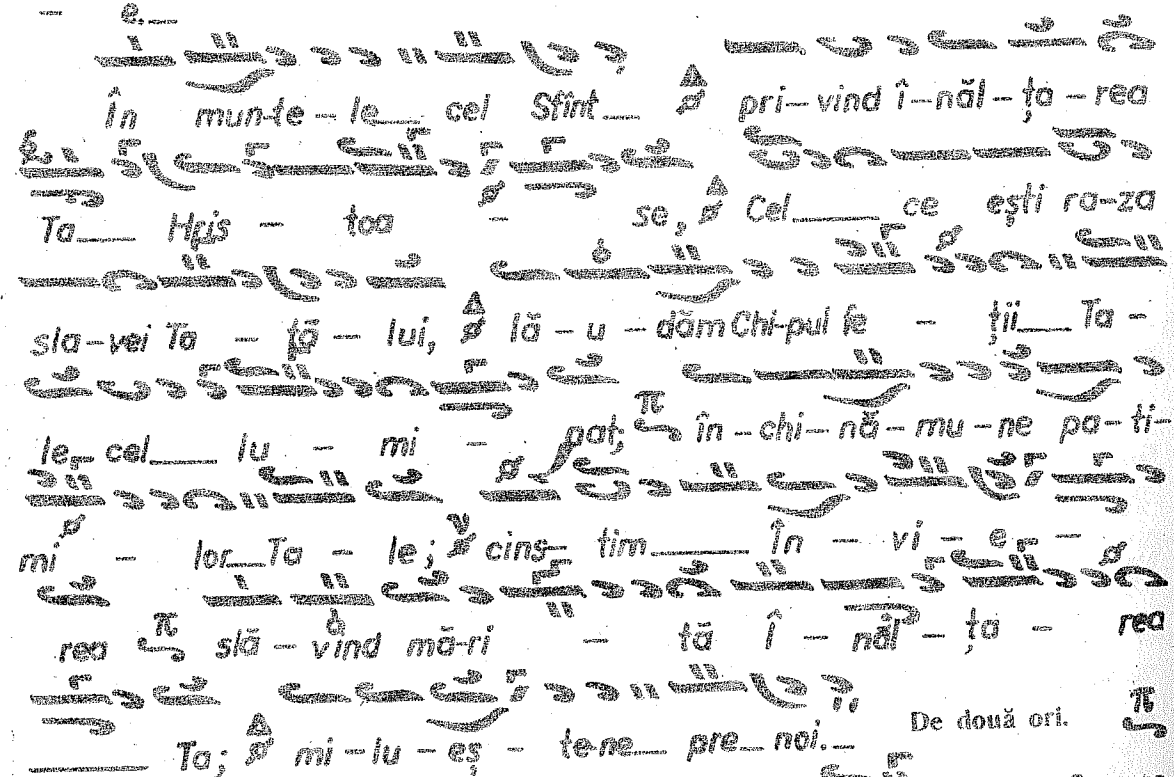 e.
În mun-te-le cel Sfînt Δ pri-vind î-năl-ța-rea
Ta Hris-toa - se, Δ Cel ce ești ra-za
sla-vei Ta-tă-lui, Δ lă-u-dăm Chi-pul fe-ții Ta-
le cel lu-mi-pat; π în-chi-nă-mu-ne pa-ti-
mi-lor Ta-le; cins-tim În-vi-e-
rea π slă-vind mă-ri-tă Î-năl-ța-rea
Ta; Δ mi-lu-eș-te-ne pre noi. De două ori. π